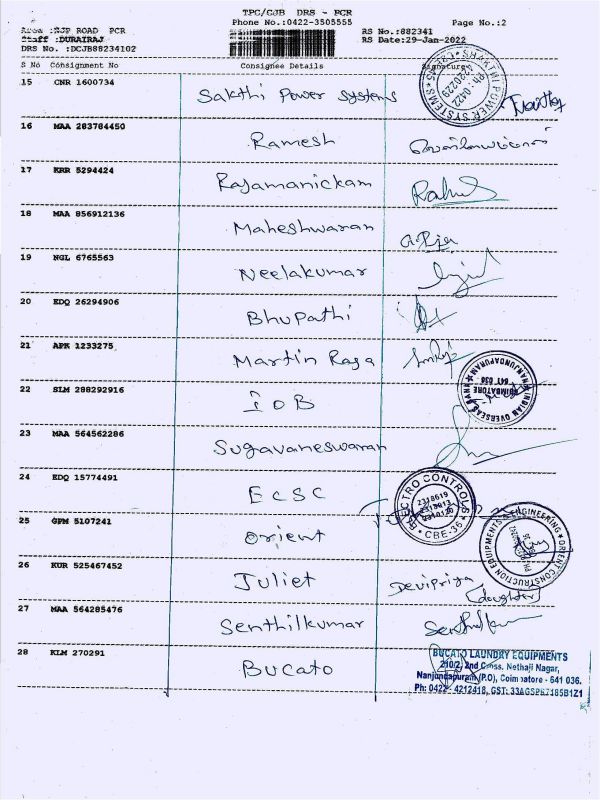 TPC/CJB DRS - PCR
Phone No.:0422-3505555 Page No.:2
Area :NJP ROAD PCR RS No.:882341
Staff :DURAIRAJ RS Date:29-Jan-2022
DRS No. :DCJB88234102
S No Consignment No Consignee Details Signature
15 CNR 1600734 Sakthi Power Systems
SHAKTHI POWER SYSTEMS
PH: 0422
4220229
16 MAA 283784450 Ramesh
17 KRR 5294424 Rajamanickam Rahul
18 MAA 856912136 Maheshwaran
19 NGL 6765563 Neelakumar
20 EDQ 26294906 Bhupathi
21 APK 1233275 Martin Raja
22 SLM 288292916 IOB
INDIAN OVERSEAS BANK
NANJUNDAPURAM
COIMBATORE
641 036
23 MAA 564562286 Sugavaneswaran
24 EDQ 15774491 ECSC
ELECTRO CONTROLS
2318619
CBE-36
25 GPM 5107241 Orient
ORIENT CONSTRUCTION EQUIPMENTS & ENGINEERING
26 KUR 525467452 Juliet Devipriya
(daughter)
27 MAA 564285476 Senthilkumar Senthilkumar
28 KLM 270291 Bucato
BUCATO LAUNDRY EQUIPMENTS
210/2, 2nd Cross, Nethaji Nagar,
Nanjundapuram (P.O), Coimbatore - 641 036.
Ph: 0422 - 4212418, GST: 33AGSPR7185B1Z1